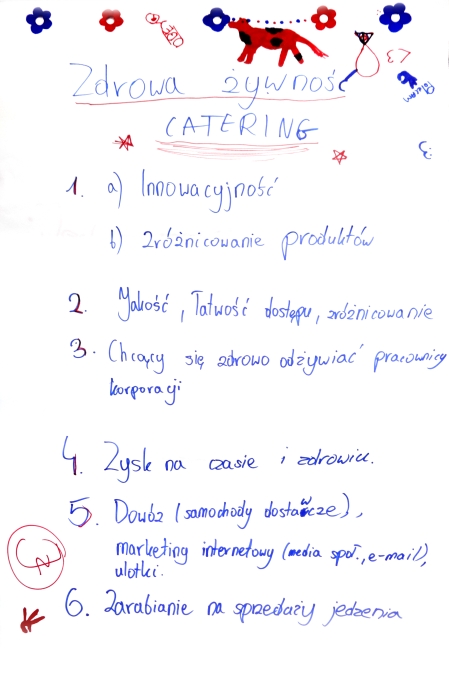 Zdrowa żywność
CATERING
1. a) Innowacyjność
b) Zróżnicowanie produktów
2. Jakość, Łatwość dostępu, zróżnicowanie
3. Chcący się zdrowo odżywiać pracownicy
korporacji
4. Zysk na czasie i zdrowiu.
5. Dowóz (samochody dostawcze),
marketing internetowy (media społ., e-mail),
ulotki.
6. Zarabianie na sprzedaży jedzenia